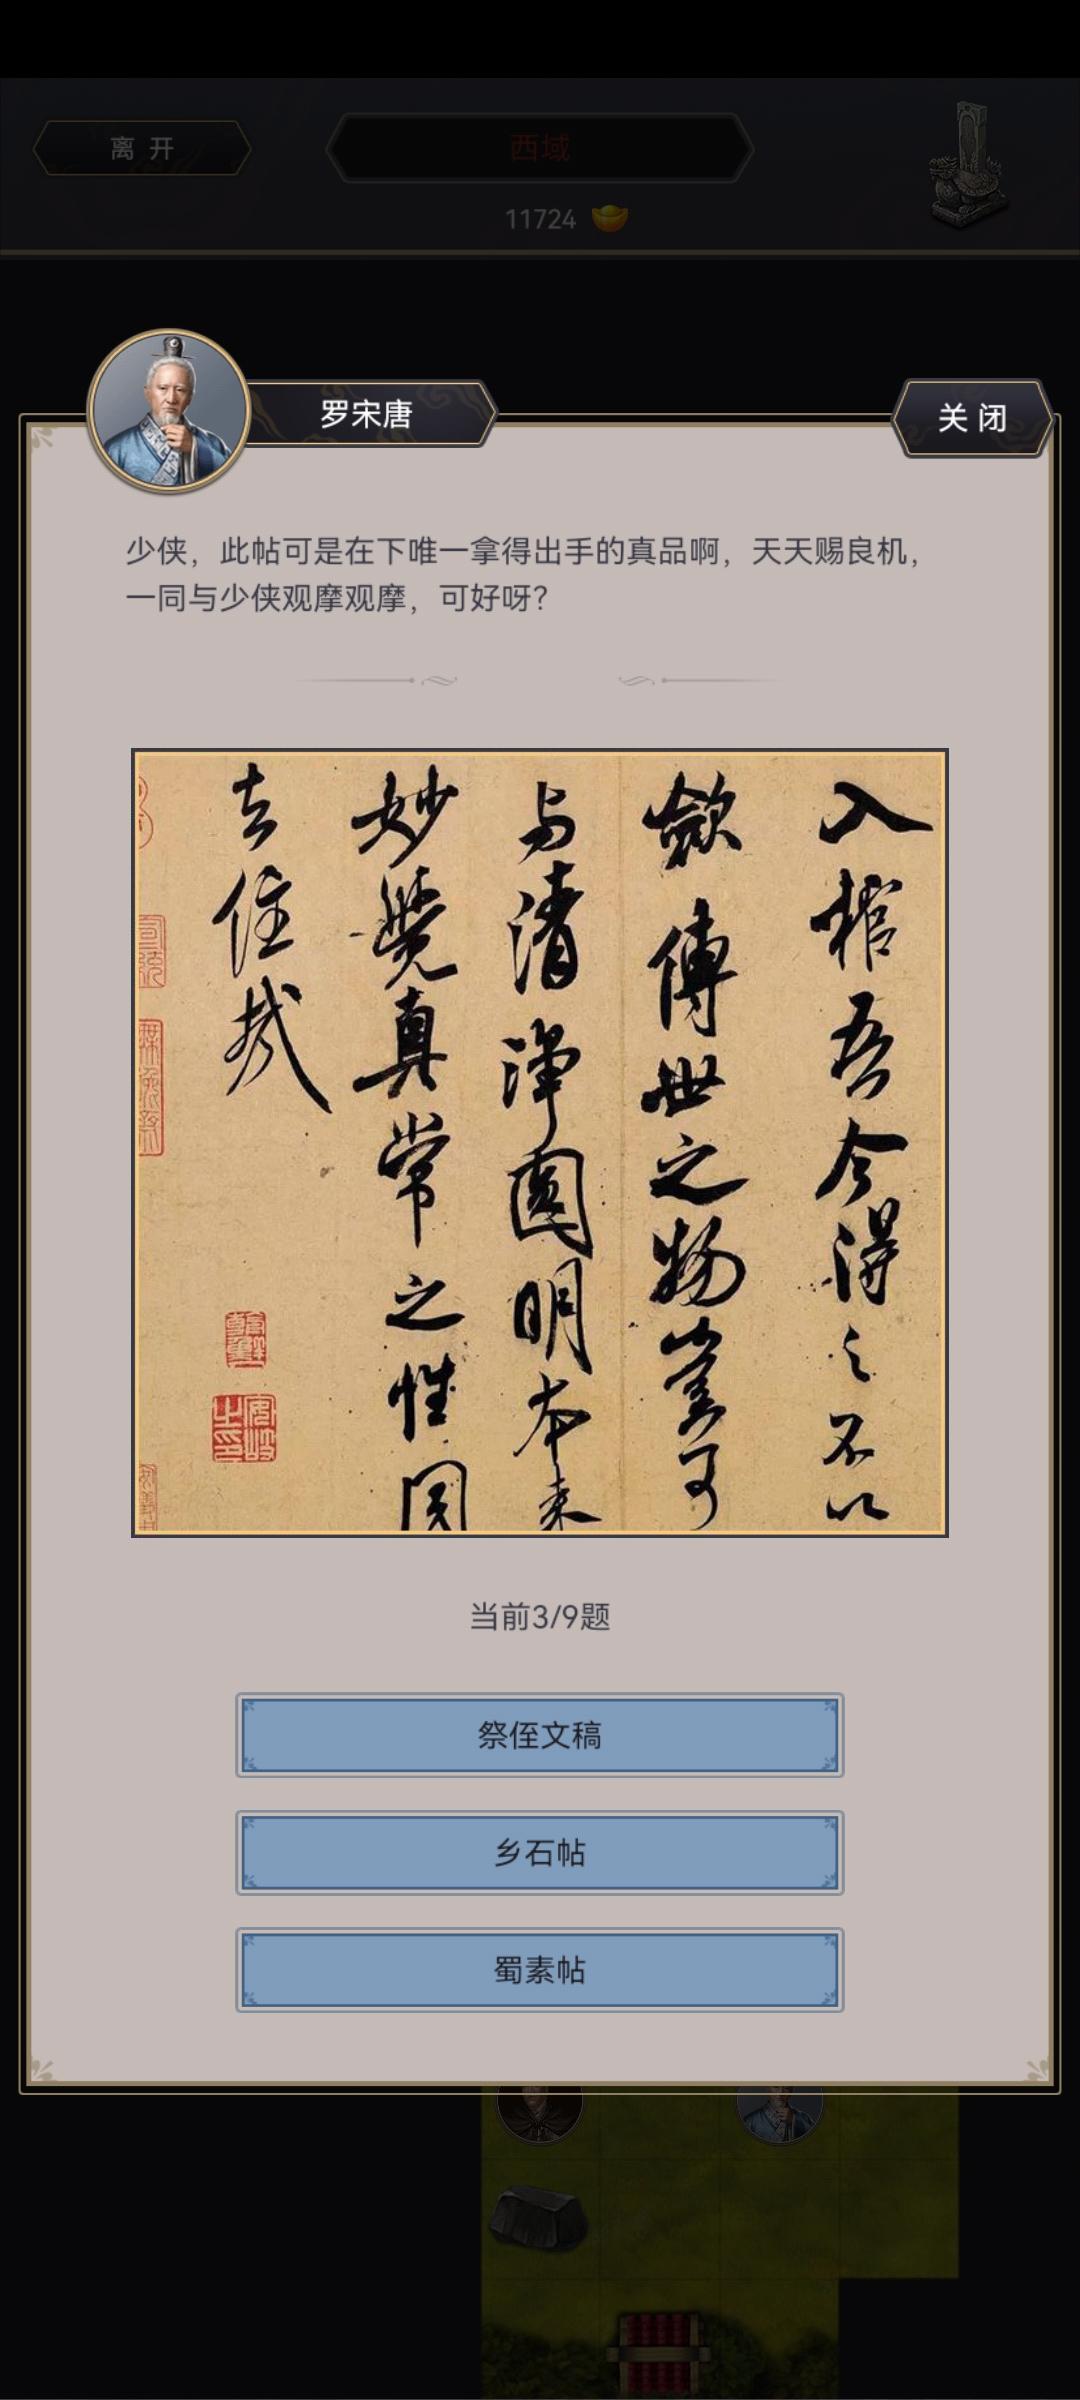 离 开
西域
11724
罗宋唐
关 闭
少侠，此帖可是在下唯一拿得出手的真品啊，天天赐良机，
一同与少侠观摩观摩，可好呀？
入棺吾今得之不以
斂傳世之物豈可
与清淨圓明本来
妙覺真常之性同
去住哉
当前3/9题
祭侄文稿
乡石帖
蜀素帖